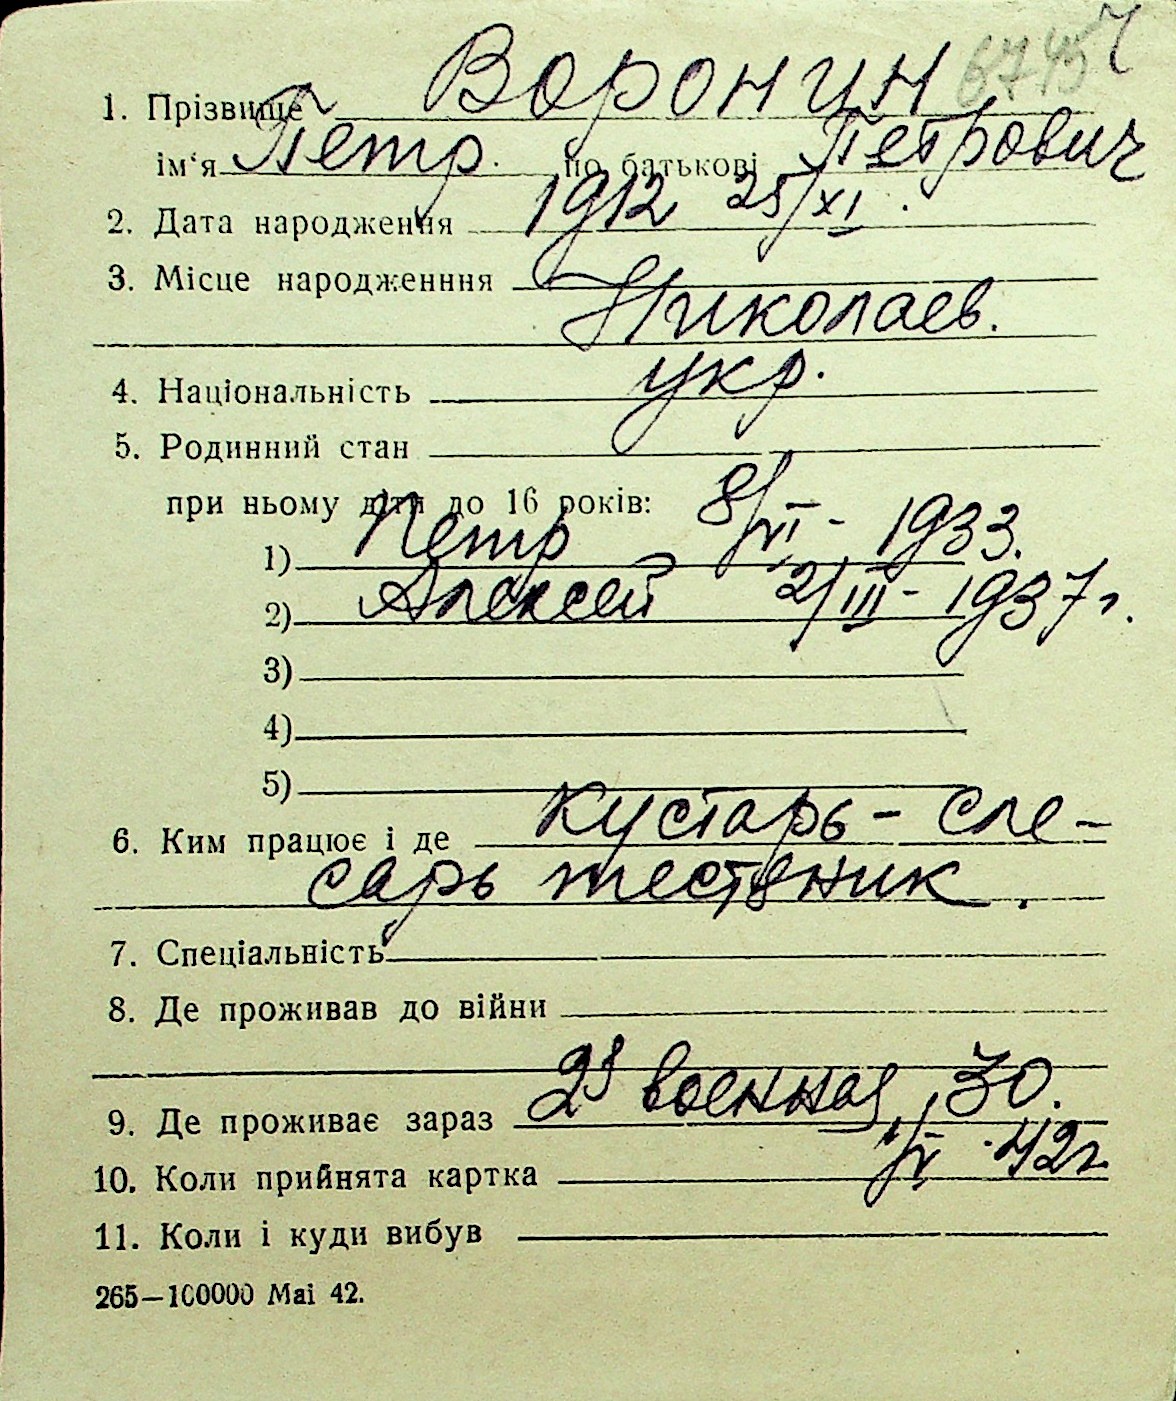 1. Прізвище Воронин
ім‘я Петр. по батькові Петрович
2. Дата народження 1912 25/XI.
3. Місце народженння
Николаев.
4. Національність укр.
5. Родинний стан
при ньому діти до 16 років:
1) Петр 8/VI - 1933.
2) Алексей 2/III - 1937 г.
3)
4)
5)
6. Ким працює і де Кустарь - сле-
сарь жестяник.
7. Спеціальність
8. Де проживав до війни
9. Де проживає зараз 2я военная, 30.
10. Коли прийнята картка 42г.
11. Коли і куди вибув
265—100000 Mai 42.